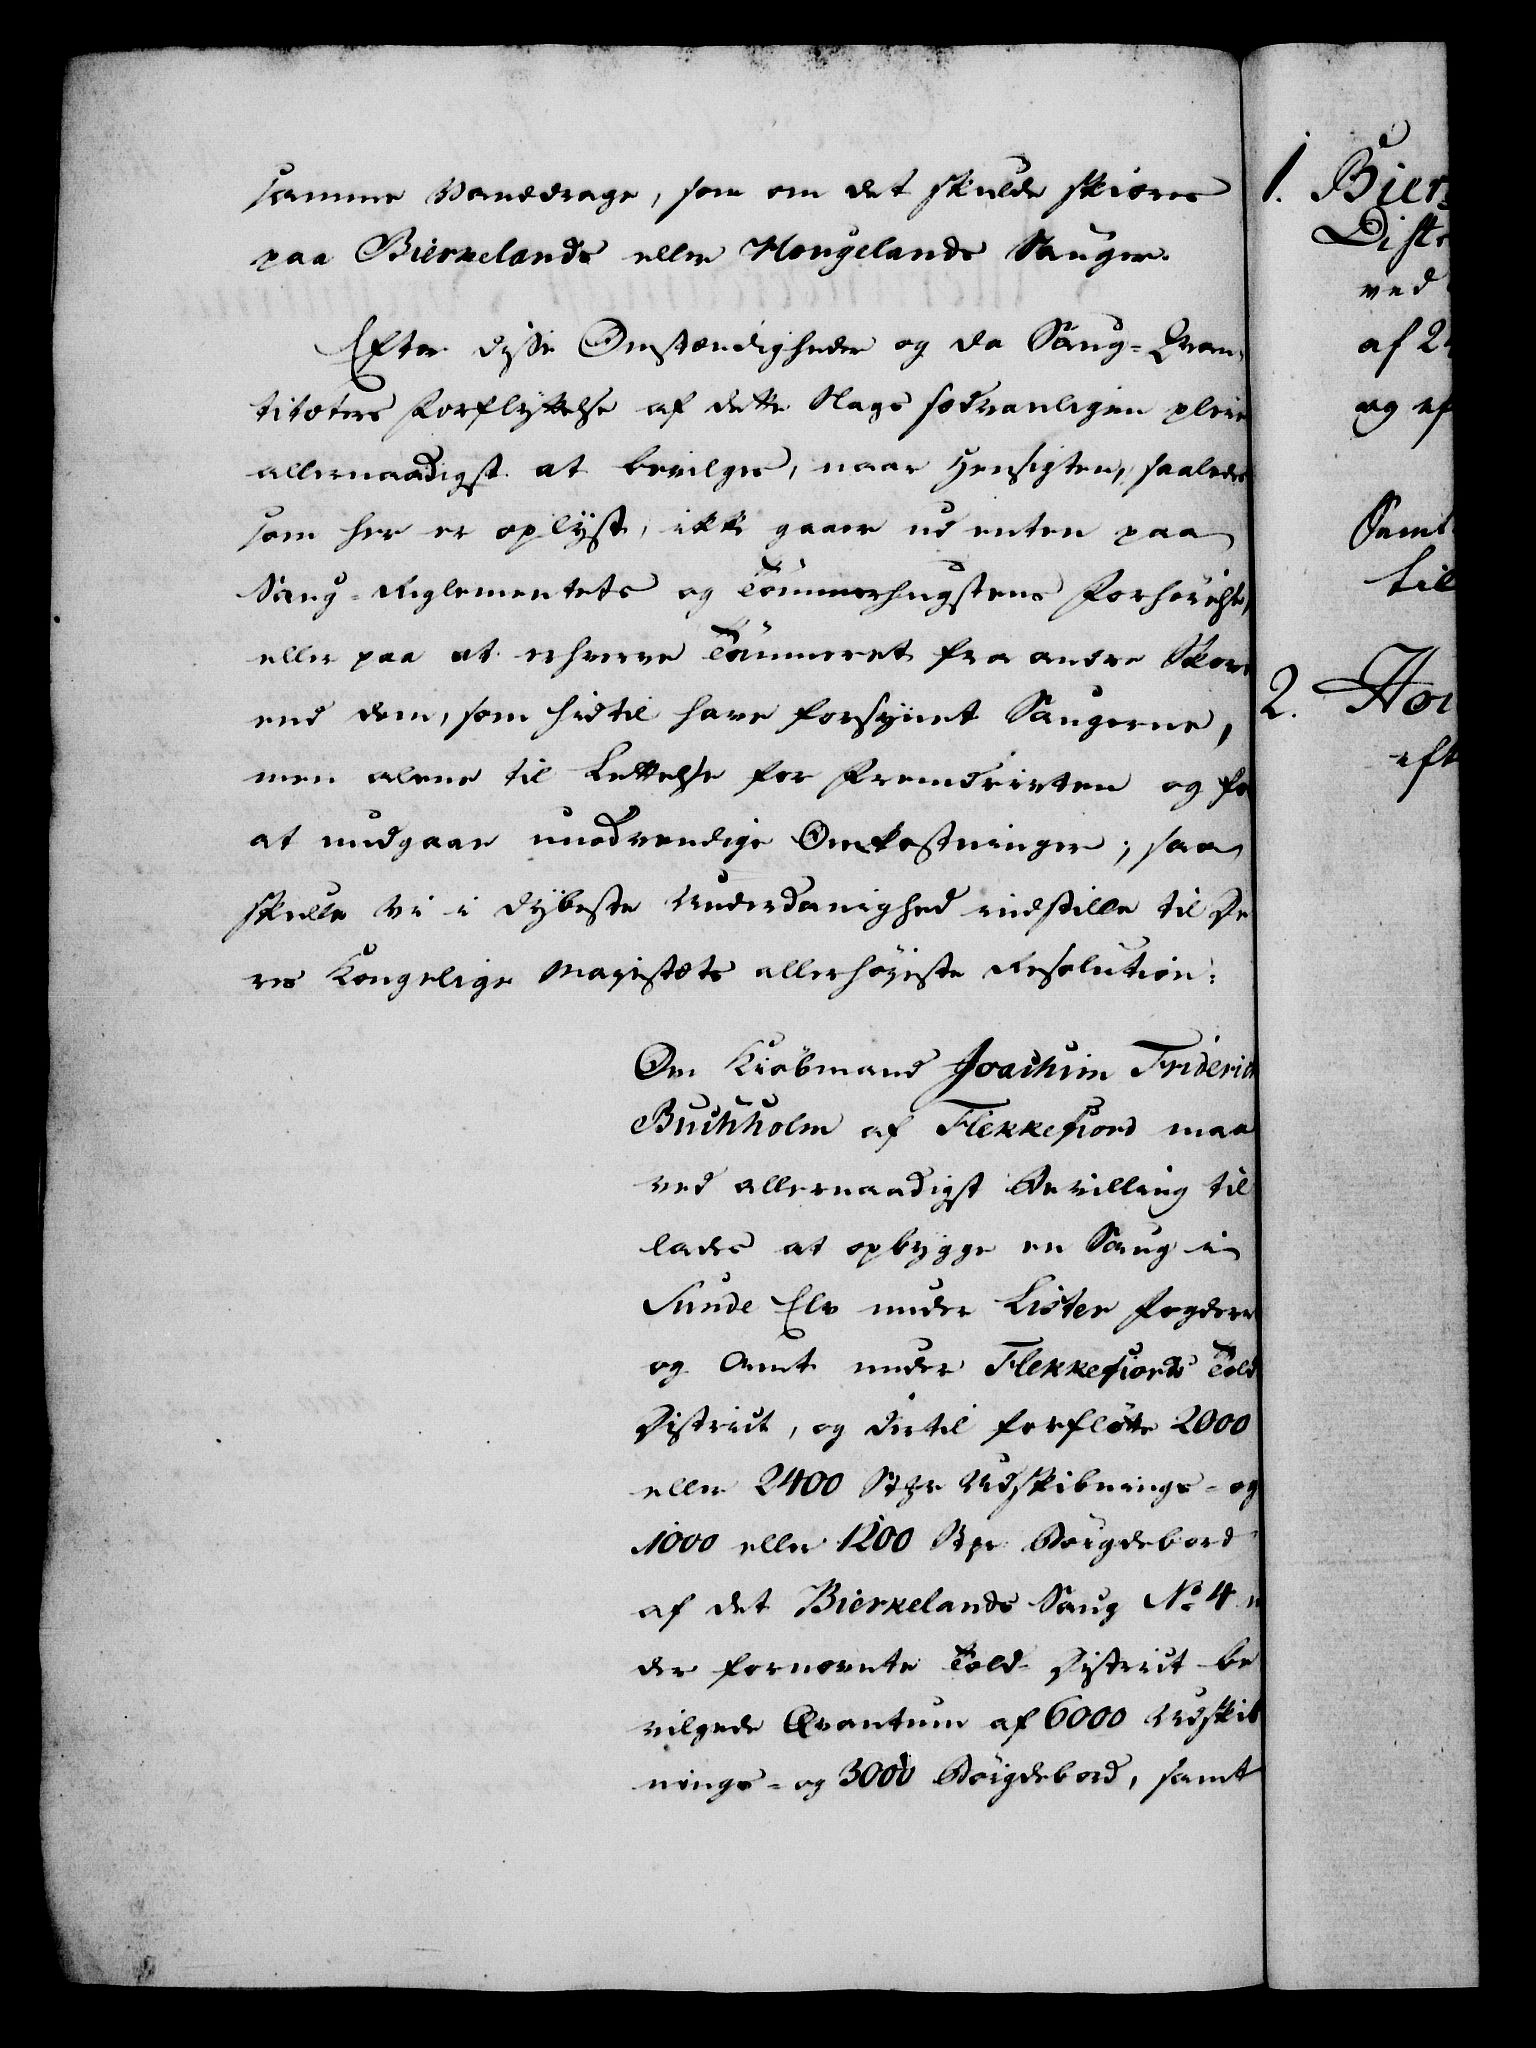 samme Vanddrage, som om det skulde skiæres
paa Bierkelands eller Hougelands Sauger.
Efter disse Omstændigheder og da Saug-Qvan¬
titæters Forflyttelse af dette Slags sædvanligen pleie
allernaadigst at bevilges, naar Hensigten, saaledes
som her er oplyst, ikke gaaer ud enten paa
Saug-Reglementets og Tömmerhugstens Forhöielse,
eller paa at erhverve Tömmeret fra andre Skove
end dem, som hidtil have forsynet Saugerne,
men alene til Lettelse for Fremdrivten og for
at undgaae unödvendige Omkostninger; saa
skulle Vi i dybeste Underdanighed indstille til De
res Kongelige Majestæts allerhöieste Resolution:
Om Kiöbmand Joachim Friderich
Buchholm af Flekkefiord maa
ved allernaadigst Bevilling til
lades at opbygge en Saug i
Sunde Elv under Lister Fogderie
og Amt under Flekkefiords Told
District, og dertil forflötte 2000
eller 2400 Stkr Udskibnings- og
1000 eller 1200 Stkr Böigdebord
af det Bierkelands Saug No 4 un
der fornævnte Told-District be
vilgede Qvantum af 6000 Udskib
nings- og 3000 Böigdebord, samt
1. Bier
Distr
ved
af 24
og ef
Samt
til
2. Hou
eft